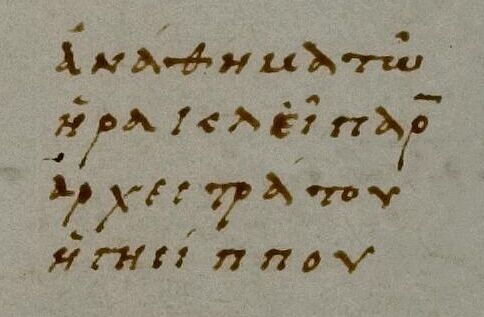 ἀνάθημα τῶ
ἡρακλεῖ παρ
ἀρχεστράτου
ἡγησίππου